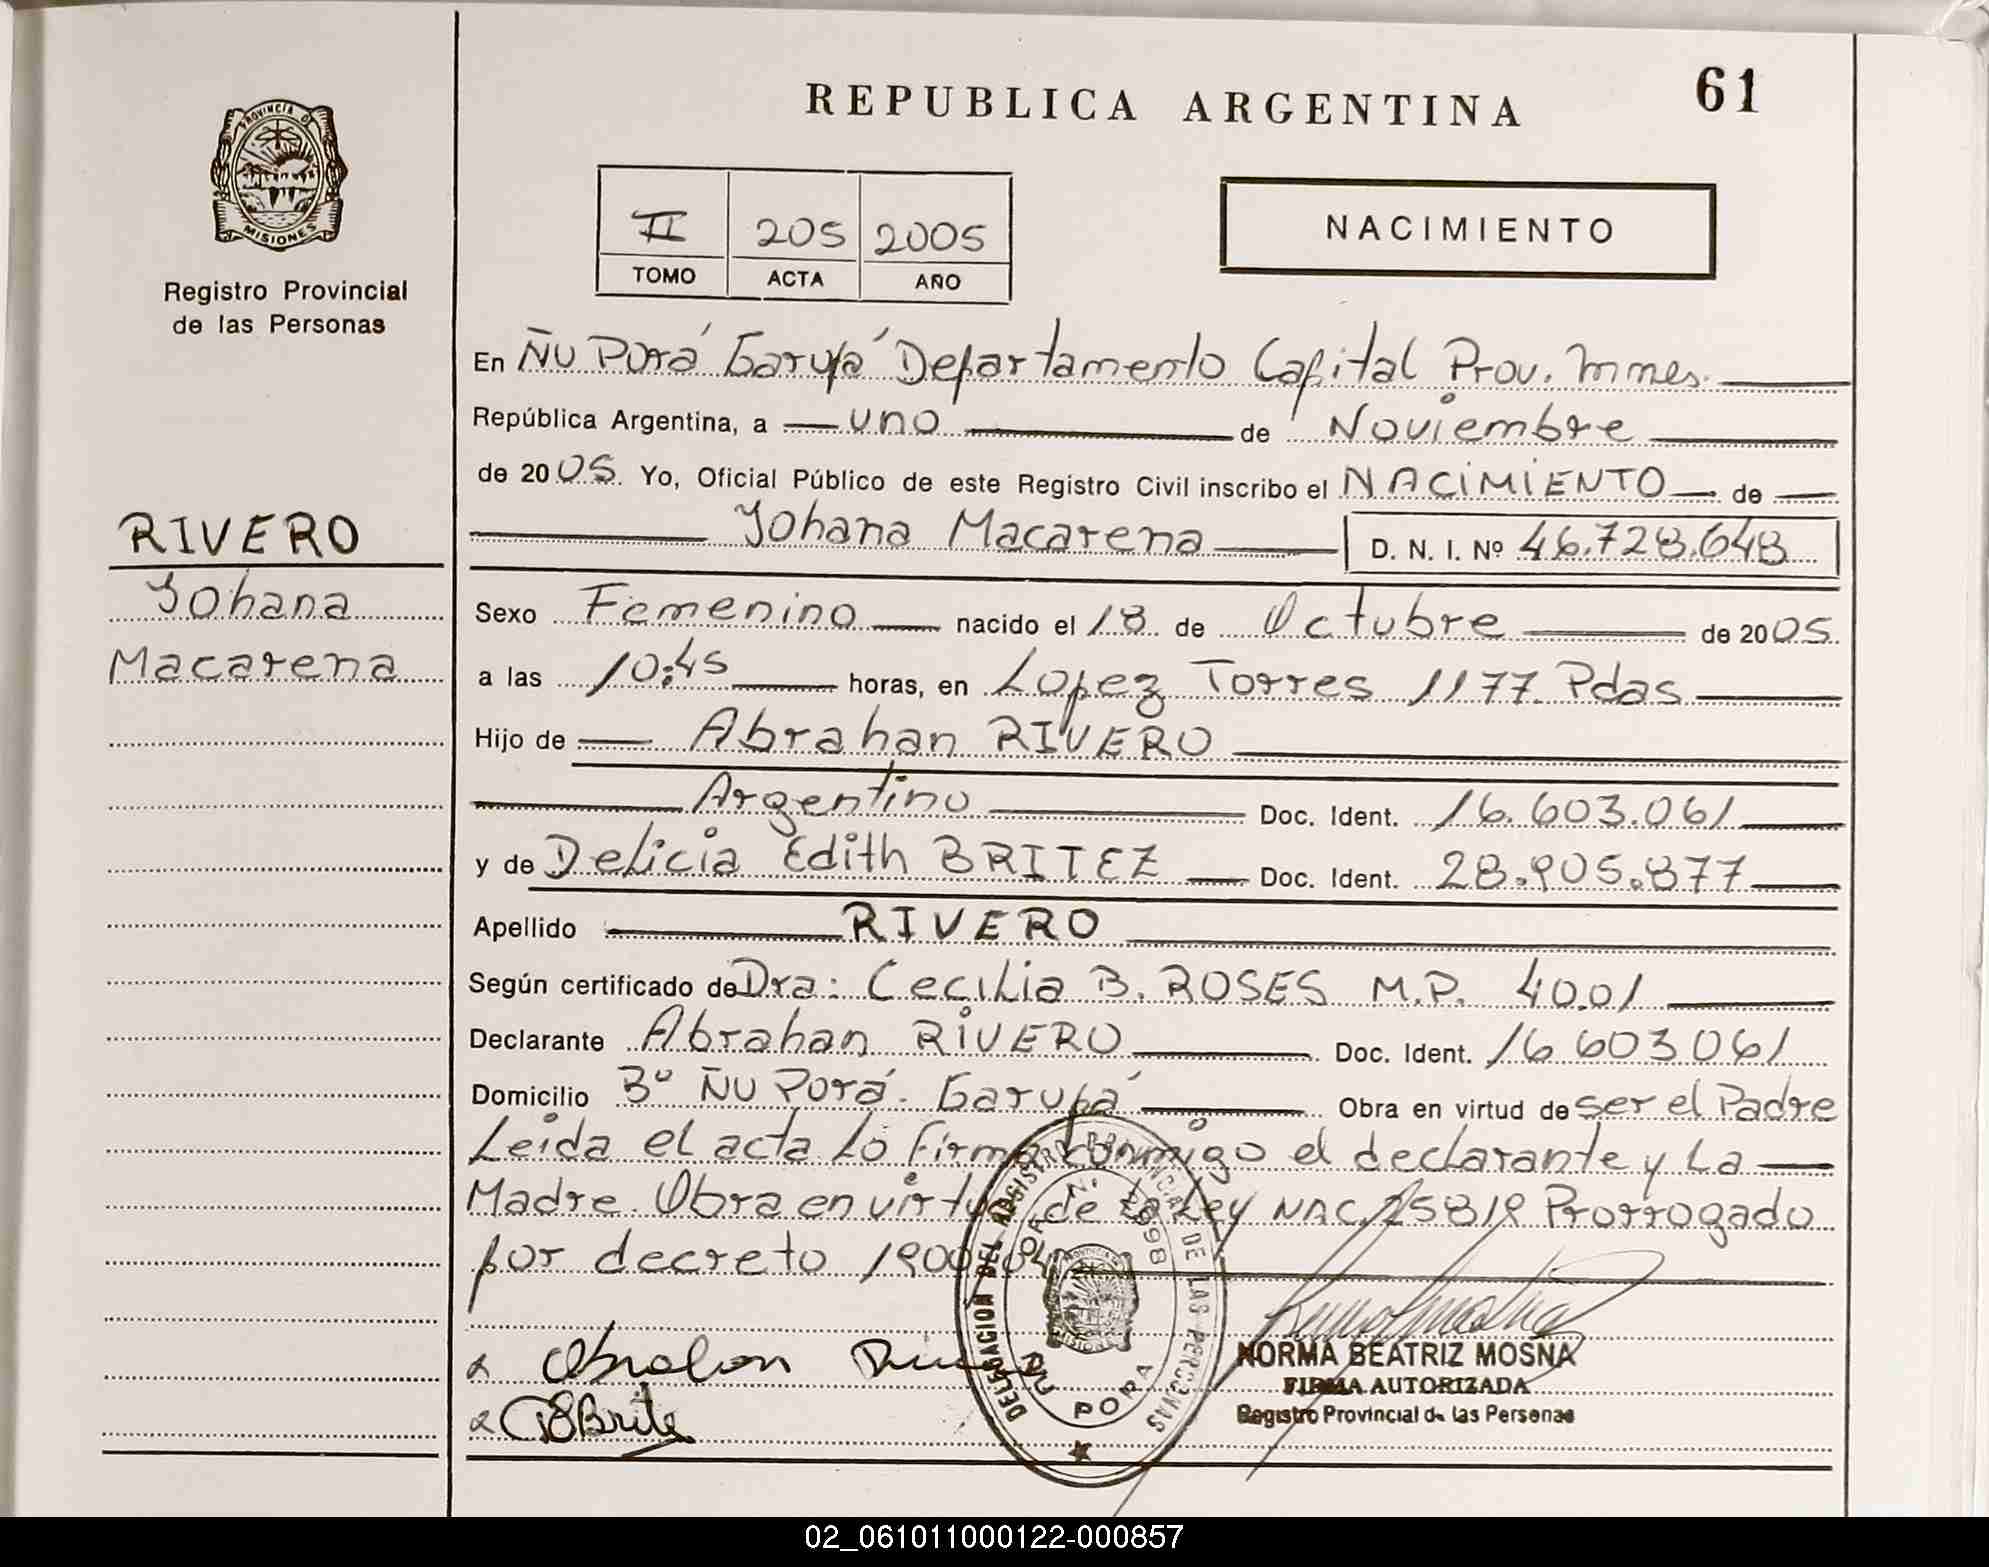 REPUBLICA ARGENTINA
61
PROVINCIA D
MISIONES
Registro Provincial
de las Personas
II 205 2005
TOMO ACTA AÑO
NACIMIENTO
En Ñu Porá Garupá Departamento Capital Prov. Mnes.
República Argentina, a uno de Noviembre
de 2005. Yo, Oficial Público de este Registro Civil inscribo el NACIMIENTO de
Yohana Macarena D. N. I. Nº 46.728.648
RIVERO
Yohana
Macarena
Sexo Femenino nacido el 18 de Octubre de 2005.
a las 10:45 horas, en Lopez Torres 1177 Pdas
Hijo de Abrahan RIVERO
Argentino Doc. Ident. 16.603.061
y de Delicia Edith BRITEZ Doc. Ident. 28.905.877
Apellido RIVERO
Según certificado de Dra: Cecilia B. ROSES M.P. 4001
Declarante Abrahan RIVERO Doc. Ident. 16 603 061
Domicilio Bº Ñu Porá. Garupá Obra en virtud de ser el Padre
Leida el acta Lo firma conmigo el declarante y La
Madre. Obra en virtud de la Ley NAC. 25819 Prorrogado
por decreto 1900/04
DELEGACION DEL REGISTRO PROVINCIAL DE LAS PERSONAS
ÑU PORA
Abrahan
Brite
NORMA BEATRIZ MOSNA
FIRMA AUTORIZADA
Registro Provincial de las Personas
02_061011000122-000857